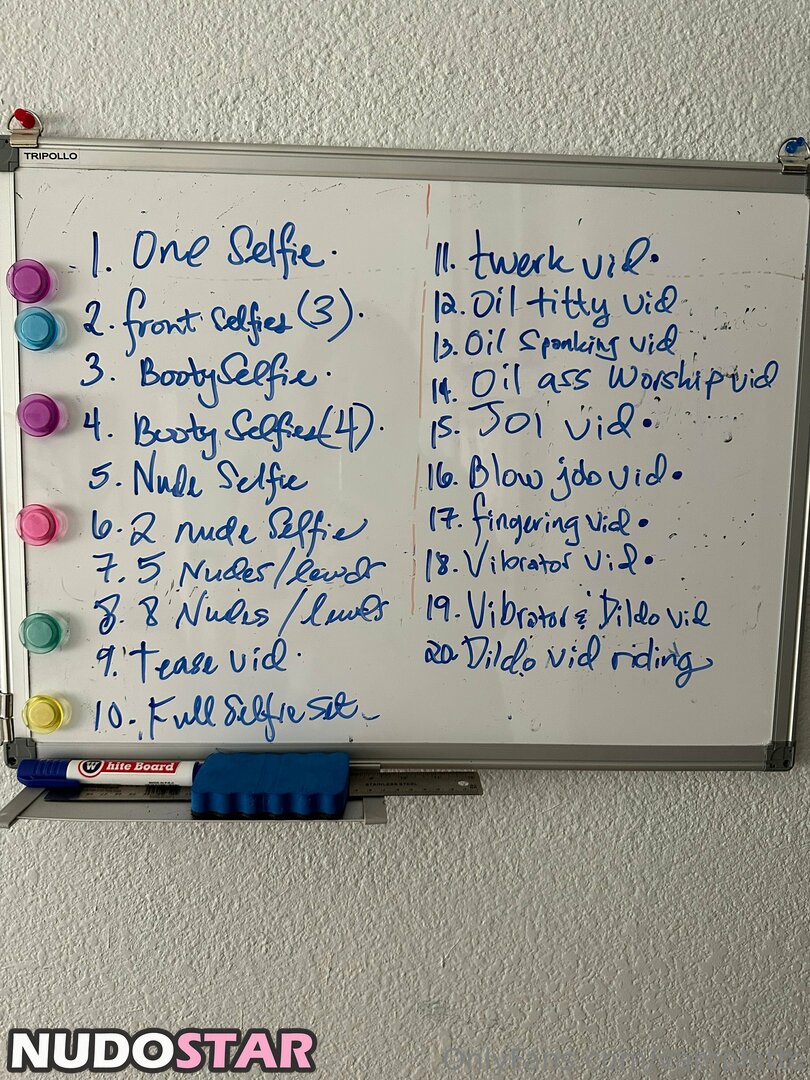 TRIPOLLO
1. One Selfie.
2. front selfies (3).
3. Booty Selfie.
4. Booty Selfies (4).
5. Nude Selfie
6. 2 nude Selfie
7. 5 Nudes/lewds
8. 8 Nudes/lewds
9. Tease vid.
10. Full Selfie set
11. twerk vid.
12. Oil titty vid
13. Oil Spanking vid
14. Oil ass Worship vid
15. JOI vid.
16. Blow job vid.
17. fingering vid.
18. Vibrator vid.
19. Vibrator & Dildo vid
20. Dildo vid riding
White Board
STAINLESS STEEL
NUDOSTAR